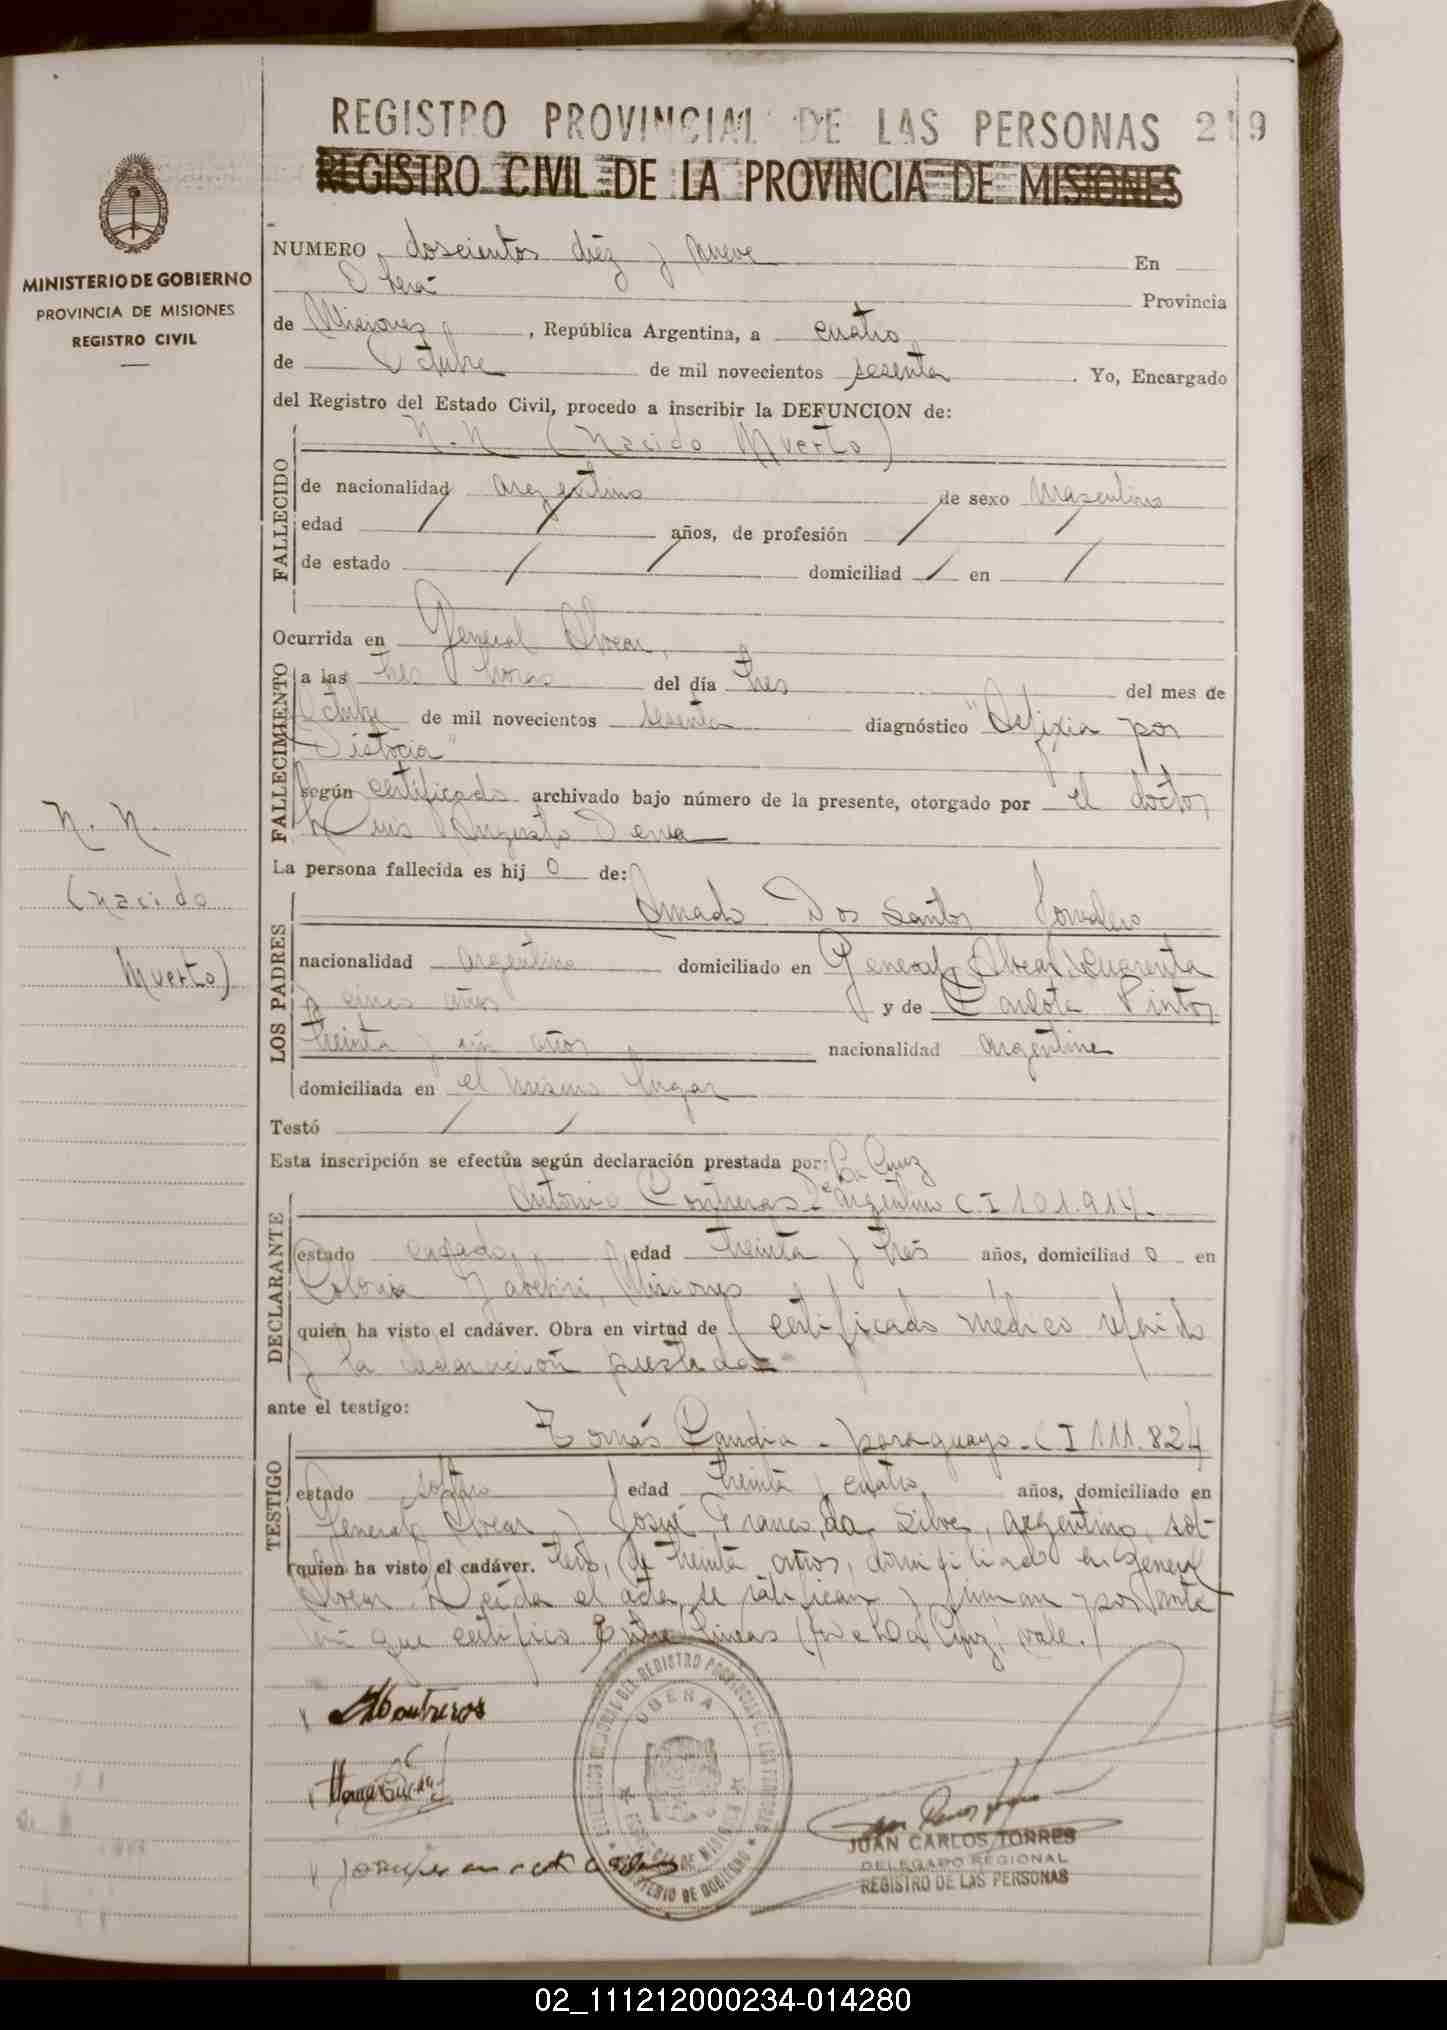 REGISTRO PROVINCIAL DE LAS PERSONAS 219
REGISTRO CIVIL DE LA PROVINCIA DE MISIONES
MINISTERIO DE GOBIERNO
PROVINCIA DE MISIONES
REGISTRO CIVIL
NUMERO doscientos diez y nueve En
Oberá Provincia
de Misiones, República Argentina, a cuatro
de Octubre de mil novecientos sesenta. Yo, Encargado
del Registro del Estado Civil, procedo a inscribir la DEFUNCION de:
N. N (Nacido Muerto)
FALLECIDO
de nacionalidad argentino de sexo Masculino
edad / / años, de profesión / /
de estado / / domiciliad / en /
Ocurrida en General Alvear,
FALLECIMIENTO
a las tres horas del día tres del mes de
Octubre de mil novecientos sesenta diagnóstico "Asfixia por
Distocia"
según certificado archivado bajo número de la presente, otorgado por el doctor
Luis Augusto
N. N.
(Nacido
Muerto)
La persona fallecida es hij o de:
LOS PADRES
Amado Dos Santos
nacionalidad argentino domiciliado en General Alvear, cuarenta
y cinco años y de Carlota Pintos
treinta y un años nacionalidad argentina
domiciliada en el mismo lugar
Testó / /
Esta inscripción se efectúa según declaración prestada por: La Cruz
DECLARANTE
Antonio Contreras argentino C. I 101.914.
estado casado, edad treinta y tres años, domiciliad o en
Colonia Yabebiri, Misiones
quien ha visto el cadáver. Obra en virtud de certificado médico referido
y la declaración prestada
ante el testigo:
TESTIGO
Tomás Candia - paraguayo - C I 111.824
estado soltero edad treinta y cuatro años, domiciliado en
General Alvear y José Franco da Silva, argentino, sol-
quien ha visto el cadáver. tero, de treinta años, domiciliado en General
Alvear. Leída el acta, se ratifican y firman por ante
mí que certifico. Entre líneas Cruz, vale.
Contreras
JUAN CARLOS TORRES
DELEGADO REGIONAL
REGISTRO DE LAS PERSONAS
02_111212000234-014280